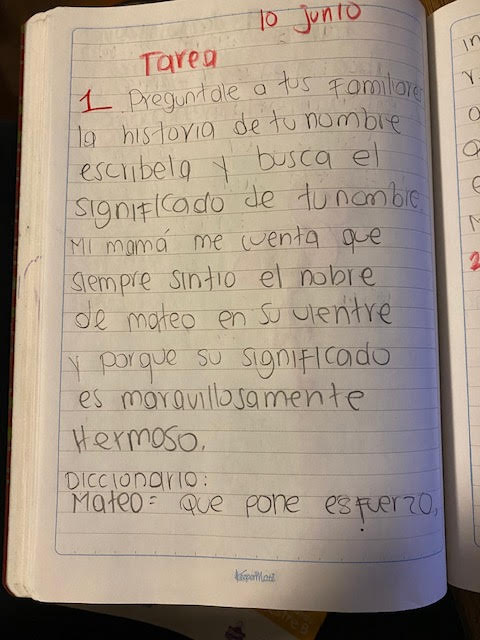 10 junio
Tarea
1 Preguntale a tus Familiare
la historia de tu nombre
escribela y busca el
significado de tu nombre.
Mi mamá me cuenta que
siempre sintio el nobre
de mateo en su vientre
y porque su significado
es maravillosamente
Hermoso.
Diccionario:
Mateo= que pone esfuerzo,
in
r
a
a
e
M
2